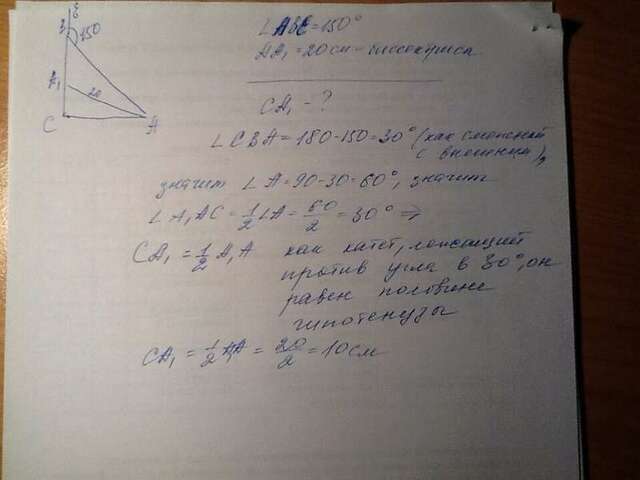 E
B
150
A₁
20
C
A
∠ABE = 150°
AA₁ = 20 см - биссектриса
CA₁ - ?
∠CBA = 180 - 150 = 30° (как смежный
с внешним),
значит ∠A = 90 - 30 = 60°, значит
∠A₁AC = 1/2 ∠A = 60/2 = 30° ⇒
CA₁ = 1/2 A₁A как катет, лежащий
против угла в 30°, он
равен половине
гипотенузы
CA₁ = 1/2 A₁A = 20/2 = 10 см